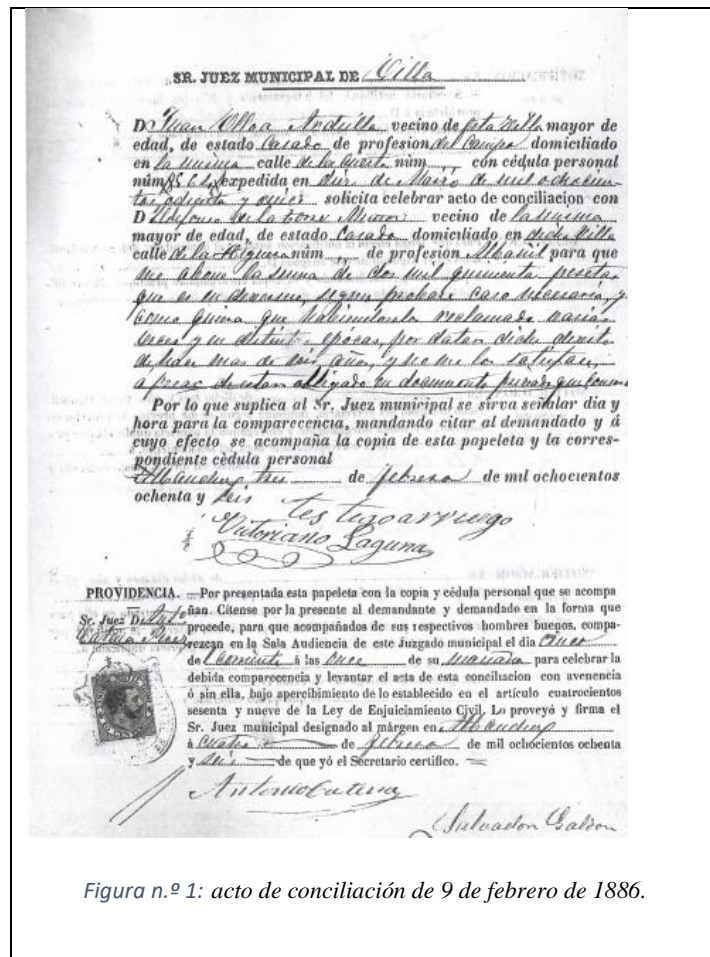 SR. JUEZ MUNICIPAL DE Villa
D. Juan Ulloa vecino de esta Villa mayor de
edad, de estado Casado de profesion del Campo domiciliado
en la misma calle de la núm. ,, con cédula personal
núm. expedida en diez de Marzo de mil ochocien-
tos ochenta y solicita celebrar acto de conciliacion con
D. Ildefonso de la Torre vecino de la misma
mayor de edad, de estado Casado domiciliado en dicha Villa
calle de la Higuera núm. ,, de profesion Albañil para que
me abone la suma de dos mil quinientas pesetas
que es en segun probare caso necesario, y
como quiera que habiendosela reclamado varias
veces y en distintas epócas, por datar dicho
de mas de seis años, y no me los
a pesar de estar obligado en documento privado que
Por lo que suplica al Sr. Juez municipal se sirva señalar dia y
hora para la comparecencia, mandando citar al demandado y á
cuyo efecto se acompaña la copia de esta papeleta y la corres-
pondiente cèdula personal
tres de febrero de mil ochocientos
ochenta y seis
testigo arruego
Vitoriano Laguna
PROVIDENCIA. —Por presentada esta papeleta con la copia y cédula personal que se acompa
Sr. Juez D. ñan. Cítense por la presente al demandante y demandado en la forma que
procede, para que acompañados de sus respectivos hombres buenos, compa-
rezcan en la Sala Audiencia de este Juzgado municipal el dia
del corriente á las once de su mañana para celebrar la
debida comparecencia y levantar el acta de esta conciliacion con avenencia
ó sin ella, bajo apercibimiento de lo establecido en el artículo cuatrocientos
sesenta y nueve de la Ley de Enjuiciamiento Civil. Lo proveyó y firma el
Sr. Juez municipal designado al márgen en
á cuatro de febrero de mil ochocientos ochenta
y seis de que yó el Secretario certifico.
Antonio Catena
Salvador Galdon
Figura n.º 1: acto de conciliación de 9 de febrero de 1886.